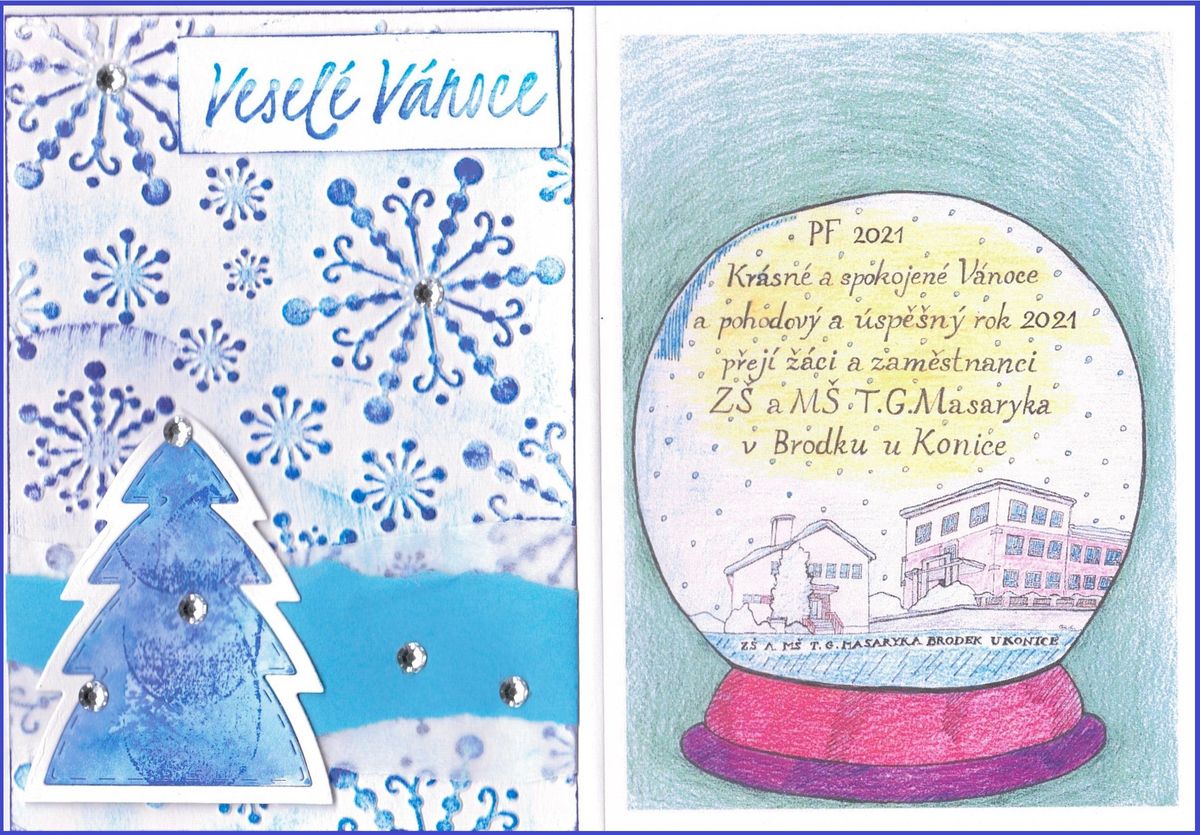 Veselé Vánoce
PF 2021
Krásné a spokojené Vánoce
a pohodový a úspěšný rok 2021
přejí žáci a zaměstnanci
ZŠ a MŠ T.G.Masaryka
v Brodku u Konice
ZŠ A MŠ T.G.MASARYKA BRODEK U KONICE